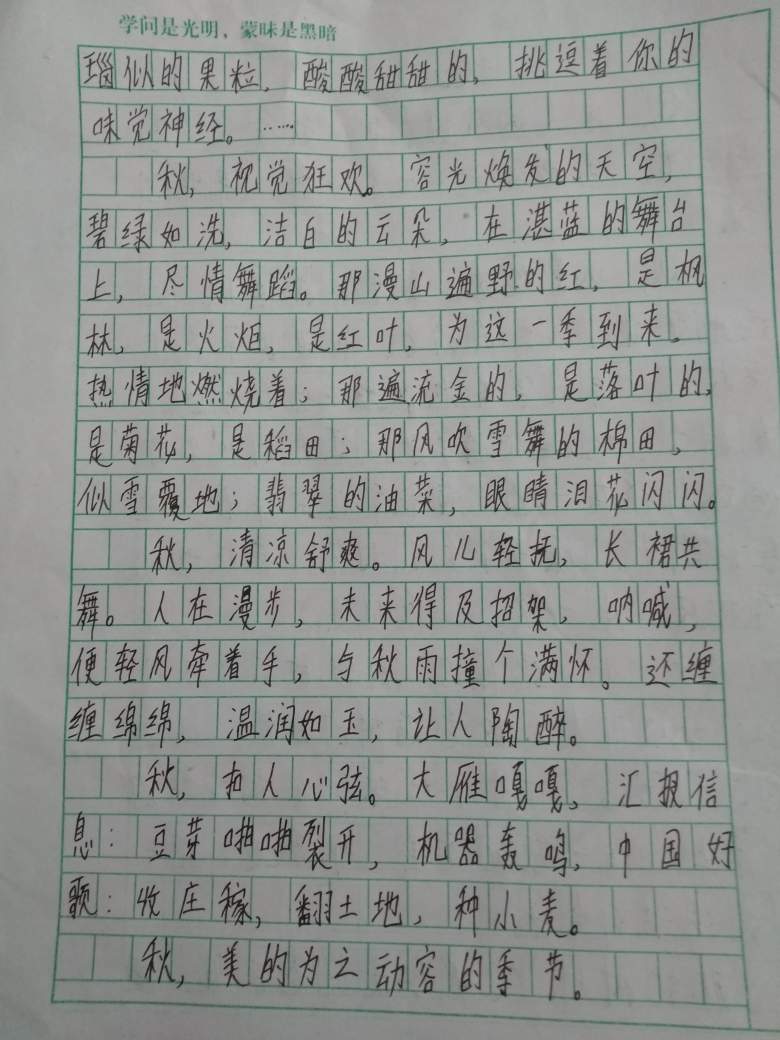 学问是光明，蒙昧是黑暗
瑙似的果粒，酸酸甜甜的，挑逗着你的
味觉神经。……
秋，视觉狂欢。容光焕发的天空，
碧绿如洗，洁白的云朵，在湛蓝的舞台
上，尽情舞蹈。那漫山遍野的红，是枫
林，是火炬，是红叶，为这一季到来，
热情地燃烧着；那遍流金的，是落叶的，
是菊花，是稻田；那风吹雪舞的棉田，
似雪覆地；翡翠的油菜，眼睛泪花闪闪。
秋，清凉舒爽。风儿轻抚，长裙共
舞。人在漫步，未来得及招架，呐喊，
便轻风牵着手，与秋雨撞个满怀。还缠
缠绵绵，温润如玉，让人陶醉。
秋，扣人心弦。大雁嘎嘎，汇报信
息：豆芽啪啪裂开，机器轰鸣，中国好
歌：收庄稼，翻土地，种小麦。
秋，美的为之动容的季节。